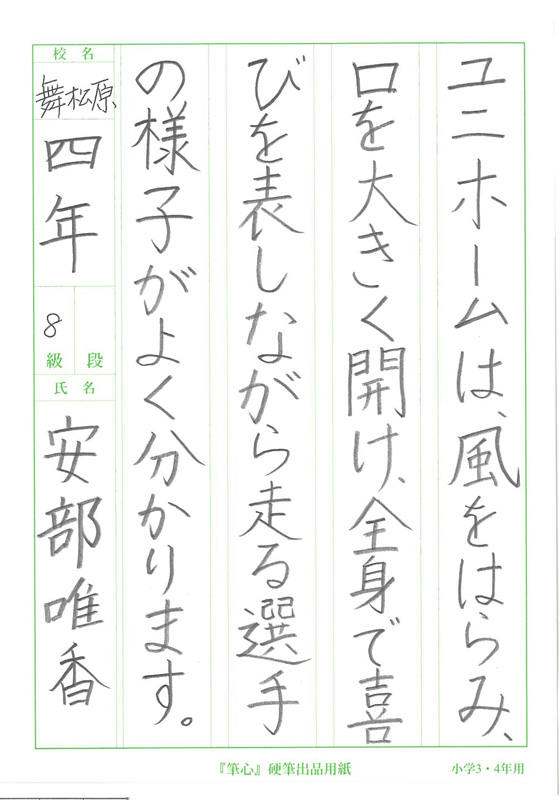 ユニホームは、風をはらみ、
口を大きく開け、全身で喜
びを表しながら走る選手
の様子がよく分かります。
校名
舞松原
四年
8
級 段
氏名
安部唯香
『筆心』硬筆出品用紙
小学3・4年用